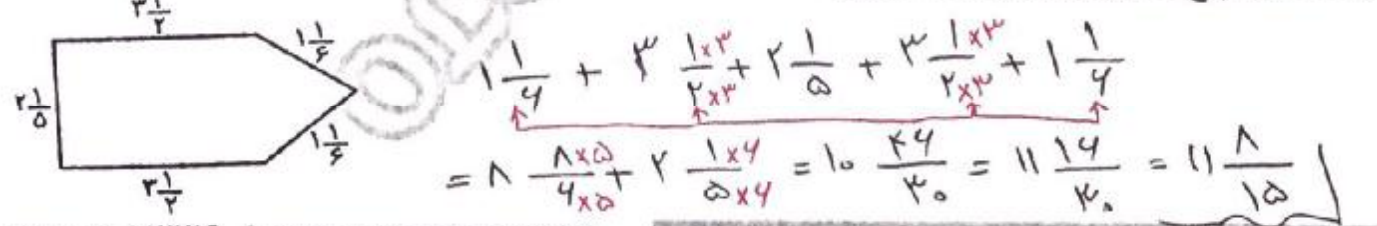 ۳ ۱/۲
۱ ۱/۶
۲ ۱/۵
۱ ۱/۶
۳ ۱/۲
۱ ۱/۶ + ۳ ۱×۳/۲×۳ + ۲ ۱/۵ + ۳ ۱×۳/۲×۳ + ۱ ۱/۶
= ۸ ۸×۵/۶×۵ + ۲ ۱×۶/۵×۶ = ۱۰ ۴۶/۳۰ = ۱۱ ۱۶/۳۰ = ۱۱ ۸/۱۵